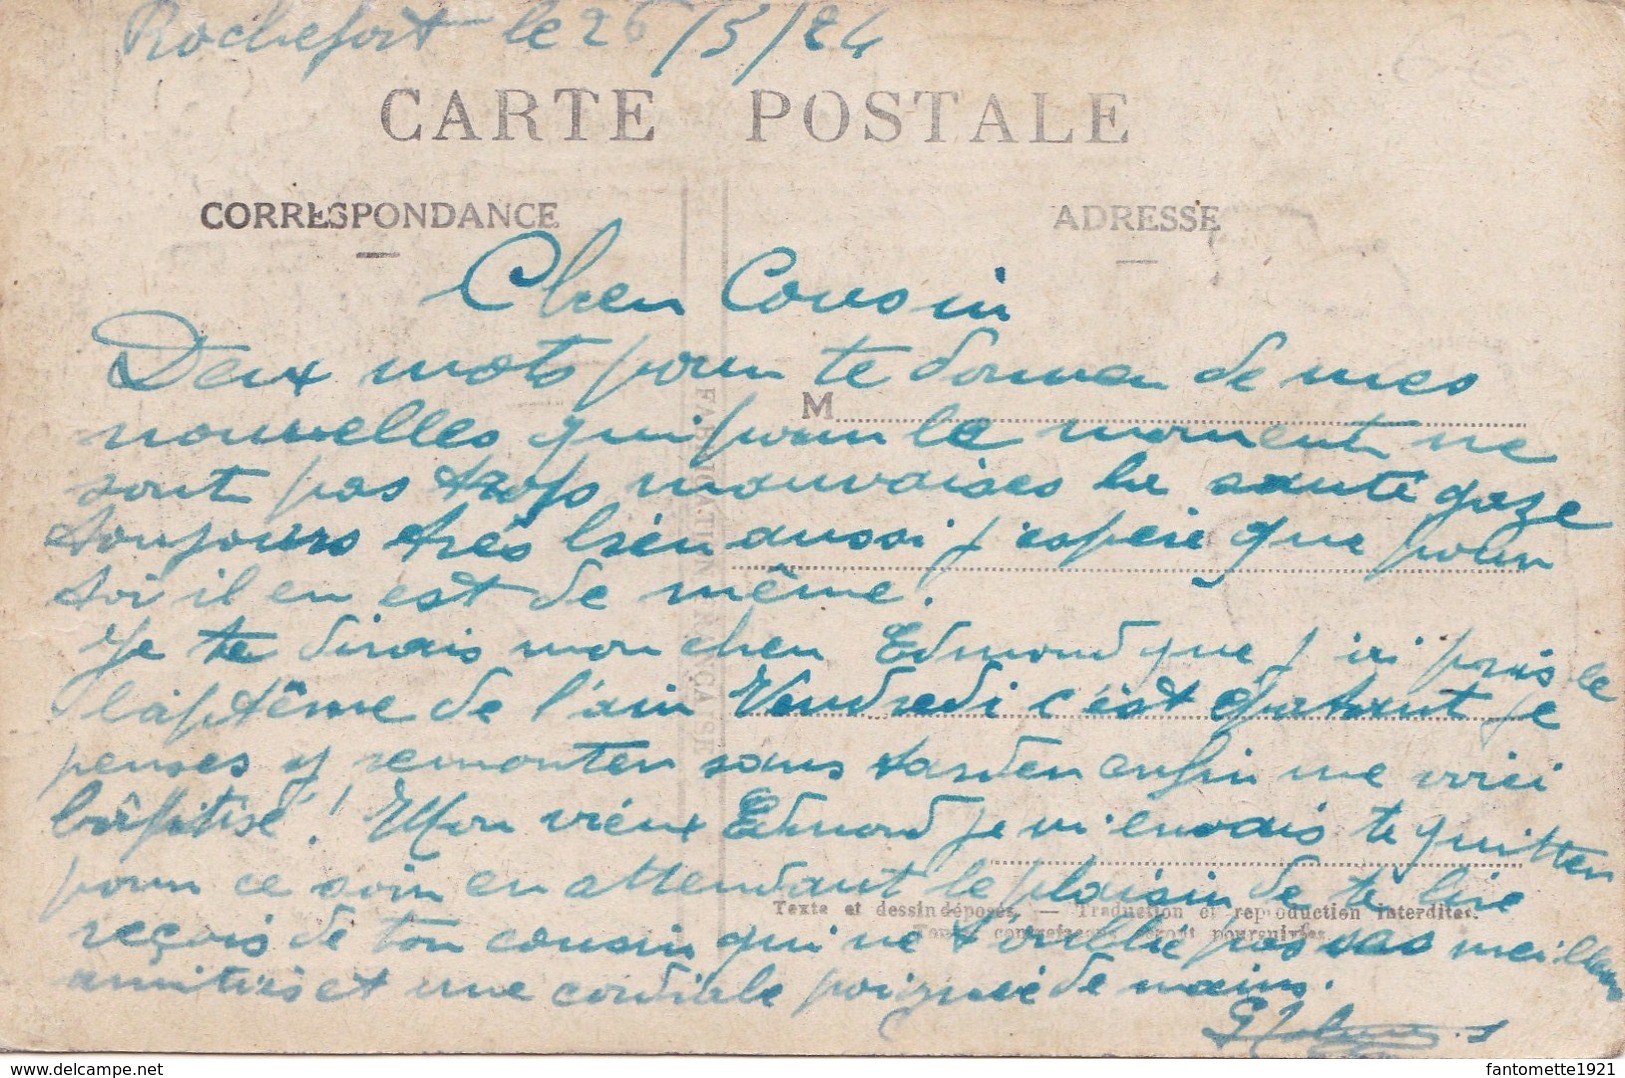 Rochefort le 26/5/24
CARTE POSTALE
CORRESPONDANCE
ADRESSE
Cher Cousin
Deux mots pour te donner de mes
M
nouvelles qui pour le moment ne
sont pas trop mauvaises la santé gaze
toujours très bien aussi j'espère que pour
toi il en est de même.
Je te dirais mon cher Edmond que j'ai pris le
baptême de l'air Vendredi c'est épatant je
penses y remonter sans tarder enfin me voici
bâptisé! Mon vieux Edmond je m'envais te quitter
pour ce soir en attendant le plaisir de te lire
Texte et dessin déposés. — Traduction et reproduction interdites.
reçois de ton cousin qui ne t'oublie pas ses meilleures
Toutes contrefaçons seront poursuivies.
amitiés et une cordiale poignée de mains.
FABRICATION FRANÇAISE
fantomette1921